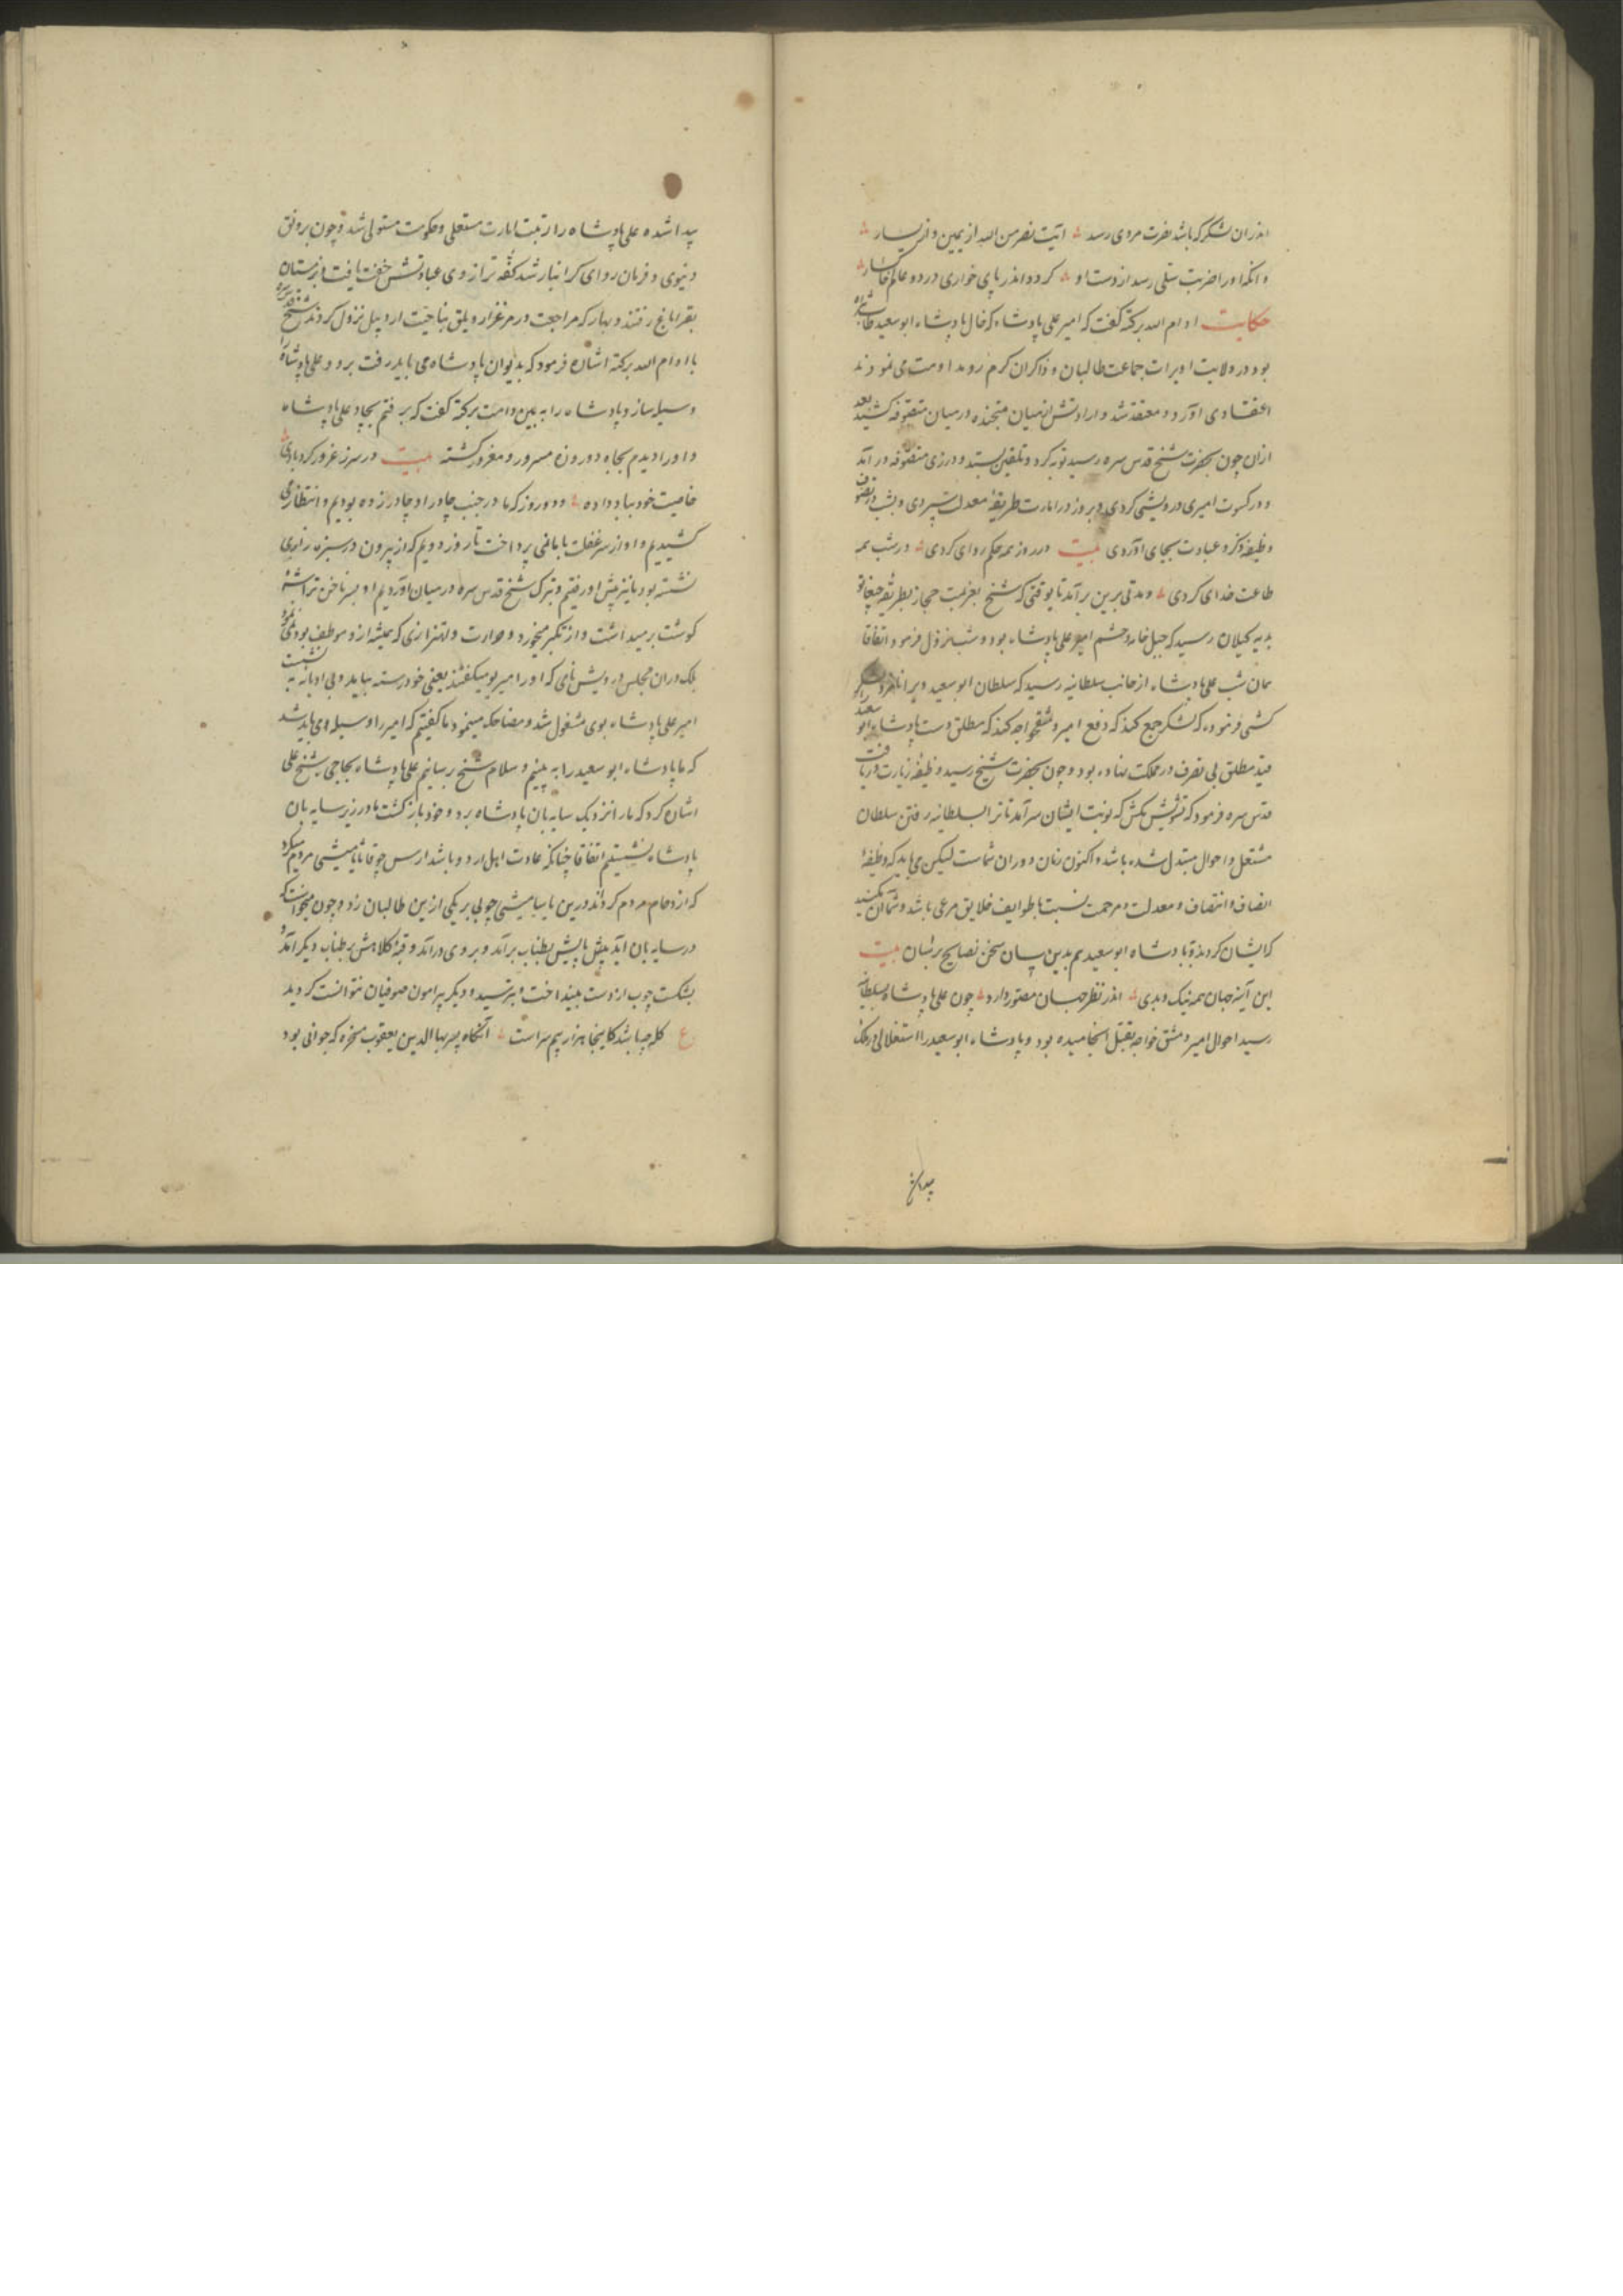 اندران لشکر که باشد نصرت مردی رسد آیت نصر من الله از یمین و از یسار
و انکه او را ضربت سیلی رسد از دست او کردد اندر پای خواری در دو عالم خاکسار
حکایت ادام الله برکته کفت که امیر علی پادشاه که خال پادشاه ابو سعید طاب ثراه
بود در ولایت اویرات جماعت طالبان و ذاکران کرم رو مداومت می نمودند
اعتقادی آورد و معتقد شد و ارادتش از میان متجنده در میان متصوفه کشید بعد
ازان چون بحضرت شیخ قدس سره رسید توبه کرد و تلقین بستد و در زی متصوفه در آمد
و در کسوت امیری درویشی کردی و بروز در امارت طریقهٔ معدلت سپردی و بشب در تصوف
وظیفهٔ ذکر و عبادت بجای آوردی بیت در روز همه حکم روای کردی در شب همه
طاعت خدای کردی و مدتی برین برآمد تا بوقتی که شیخ بعزیمت حجاز بطریق
بدیه کیلان رسید که خیل خانه و حشم امیر علی پادشاه بود و شب نزول فرمود اتفاقا
همان شب علی پادشاه از جانب سلطانیه رسید که سلطان ابو سعید ویرا نامزد لشکر
کشی فرموده که لشکر جمع کند که دفع امیر دمشق خواجه کند که مطلق دست پادشاه ابو سعید را
قید مطلق بی تصرف در مملکت نهاده بود و چون بحضرت شیخ رسید وظیفهٔ زیارت دریافت
قدس سره فرمود که تشویش مکش که نوبت ایشان سرآمد تا ترا بسلطانیه رفتن سلطان
مشتغل و احوال مبتدل شده باشد و اکنون زمان دوران شماست لیکن می باید که وظیفهٔ
انصاف و انتصاف و معدلت و مرحمت نسبت با طوایف خلایق مرعی باشد و شما آن مکنید
که ایشان کردند و با پادشاه ابو سعید هم بدین سان سخن نصایح برسان بیت
این آینه جهان همه نیک و بدی اندر نظر جهان مصور دارد چون علی پادشاه بسلطانیه
رسید احوال امیر دمشق خواجه بقتل انجامیده بود و پادشاه ابو سعید را استقلالی در ملک
پیدا شده
پیدا شده علی پادشاه را رتبت امارت مستعلی و حکومت مستولی شد و چون برونق
دنیوی و فرمان روای کرانبار شد کفهٔ ترازوی عبادتش خفت یافت تا زمستان
بقراباغ رفتند و بهار که مراجعت در مرغزار و یلق بناحیت اردبیل نزول کردند شیخ قدس سره
با ادام الله برکته اشاره فرمود که بدیوان پادشاه می باید رفت برو و علی پادشاه را
وسیله ساز و پادشاه را به بین دامت برکته کفت که برفتم بجاد علی پادشاه
و او را دیدم بجاه دو روزه مسرور و مغرور کشته بیت در سر ز غرور کرد بادی
خاصیت خود بباد داده و دو روز که ما در جنب چادر او چادر زده بودیم و انتظار می
کشیدیم و او از سر غفلت با ما نمی پرداخت تا روز دویم که از بیرون در سبزه زاری
نشسته بود ما نیز پیش او رفتیم و تبرک شیخ قدس سره در میان آوردیم او بسر ناخن تراشهٔ
کوشت بر میداشت و از تکبر میخورد و حرارت و اهتزازی که همیشه ازو موظف بود نمی نمود
بلک دران مجلس درویش نامی که او را امیر بو میکفتند یعنی خود رسته بیامد و بی ادبانه بنشست
امیر علی پادشاه بوی مشغول شد و مضاحکه مینمود ما کفتیم که امیر را وسیله می باید شد
که ما پادشاه ابو سعید را به بینیم و سلام شیخ رسانیم علی پادشاه بحاجی شیخ علی
اشارت کرد که ما را نزدیک سایه بان پادشاه برد و خود باز کشت ما در زیر سایه بان
پادشاه نشستیم اتفاقا چنانکه عادت اهل اردو باشد یامیشی مردم میکرد
که ازدحام مردم کرده اند درین یامیشی چوبی بر یکی ازین طالبان زد و چون میخواست که
در سایه بان آید پایش بطناب برآمد و بروی درآمد و قبهٔ کلاهش بر طناب دیکر آمد و
بشکست چوب از دست بینداخت و بترسید و دیکر پیرامون صوفیان نتوانست کردید
ع کله چه باشد کاینجا هزار بیم سر است آنکاه پسر بها الدین یعقوب مسخره که جوانی بود